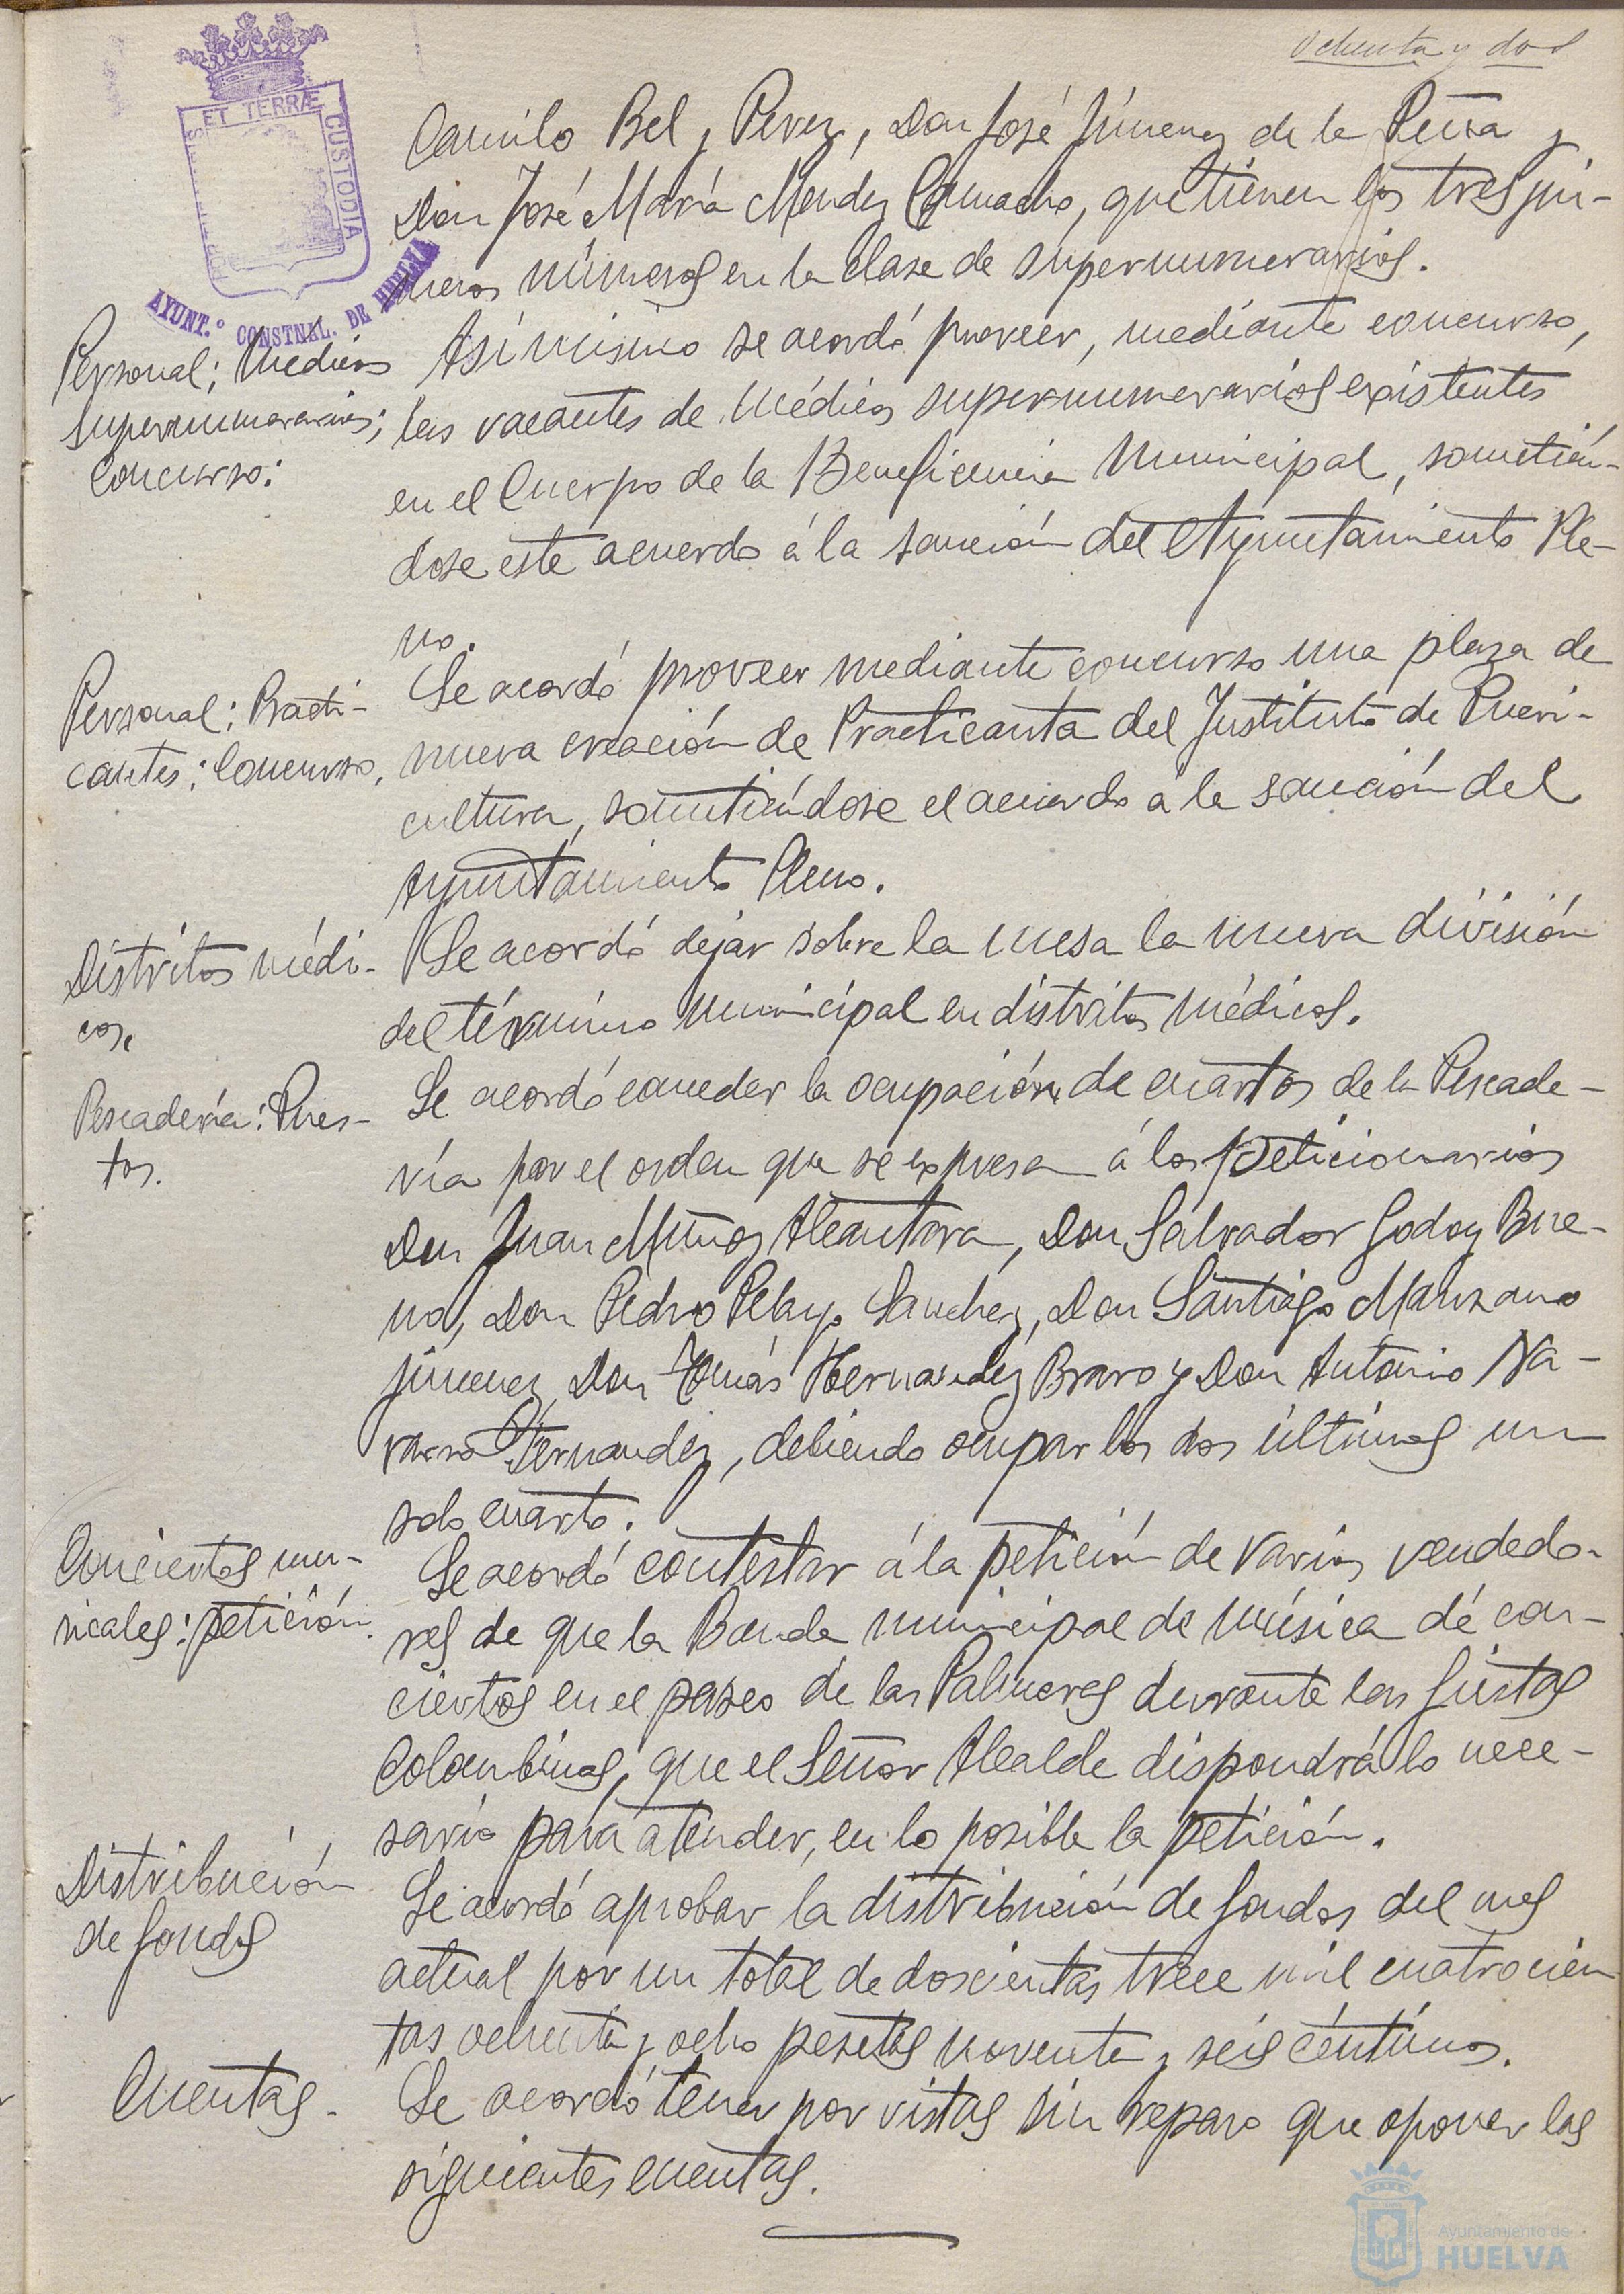 ochenta y dos
ET TERRÆ
CUSTODIA
AYUNT.º CONSTNAL. DE HUELVA
Camilo Bel y Perez, Don José Jímenez de la Peña y
Don José María Mendez Camacho, que tienen los tres pri-
meros números en la clase de supernumerarios.
Personal; Médicos
supernumerarios;
Concurso:
Asimismo se acordó proveer, mediante concurso,
las vacantes de Médicos supernumerarios existentes
en el Cuerpo de la Beneficencia Municipal, sometién-
dose este acuerdo á la sanción del Ayuntamiento Ple-
no.
Personal; Practi-
cantes; Concurso.
Se acordó proveer mediante concurso una plaza de
nueva creación de Practicanta del Instituto de Pueri-
cultura, sometiéndose el acuerdo á la sanción del
Ayuntamiento Pleno.
Distritos médi-
cos.
Se acordó dejar sobre la mesa la nueva división
del término municipal en distritos médicos.
Pescadería: Pues-
tos.
Se acordó conceder la ocupación de cuartos de la Pescade-
ría por el orden que se expresa á los peticionarios
Don Juan Muñoz Alcantara, Don Salvador Godoy Bue-
no, Don Pedro Pelayo Sanchez, Don Santiago Manzano
Jímenez, Don Tomás Hernandez Bravo y Don Antonio Na-
varro Fernandez, debiendo ocupar los dos últimos un
solo cuarto.
Conciertos mu-
sicales: petición.
Se acordó contestar á la petición de varios vendedo-
res de que la Banda municipal de música dé con-
ciertos en el paseo de las Palmeras durante las fiestas
Colombinas, que el Señor Alcalde dispondrá lo nece-
sario para atender, en lo posible la petición.
Distribución
de fondos
Se acordó aprobar la distribución de fondos del mes
actual por un total de doscientas trece mil cuatrocien
tas ochenta y ocho pesetas noventa y seis céntimos.
Cuentas.
Se acordó tener por vistas sin reparo que oponer las
siguientes cuentas.
Ayuntamiento de
HUELVA